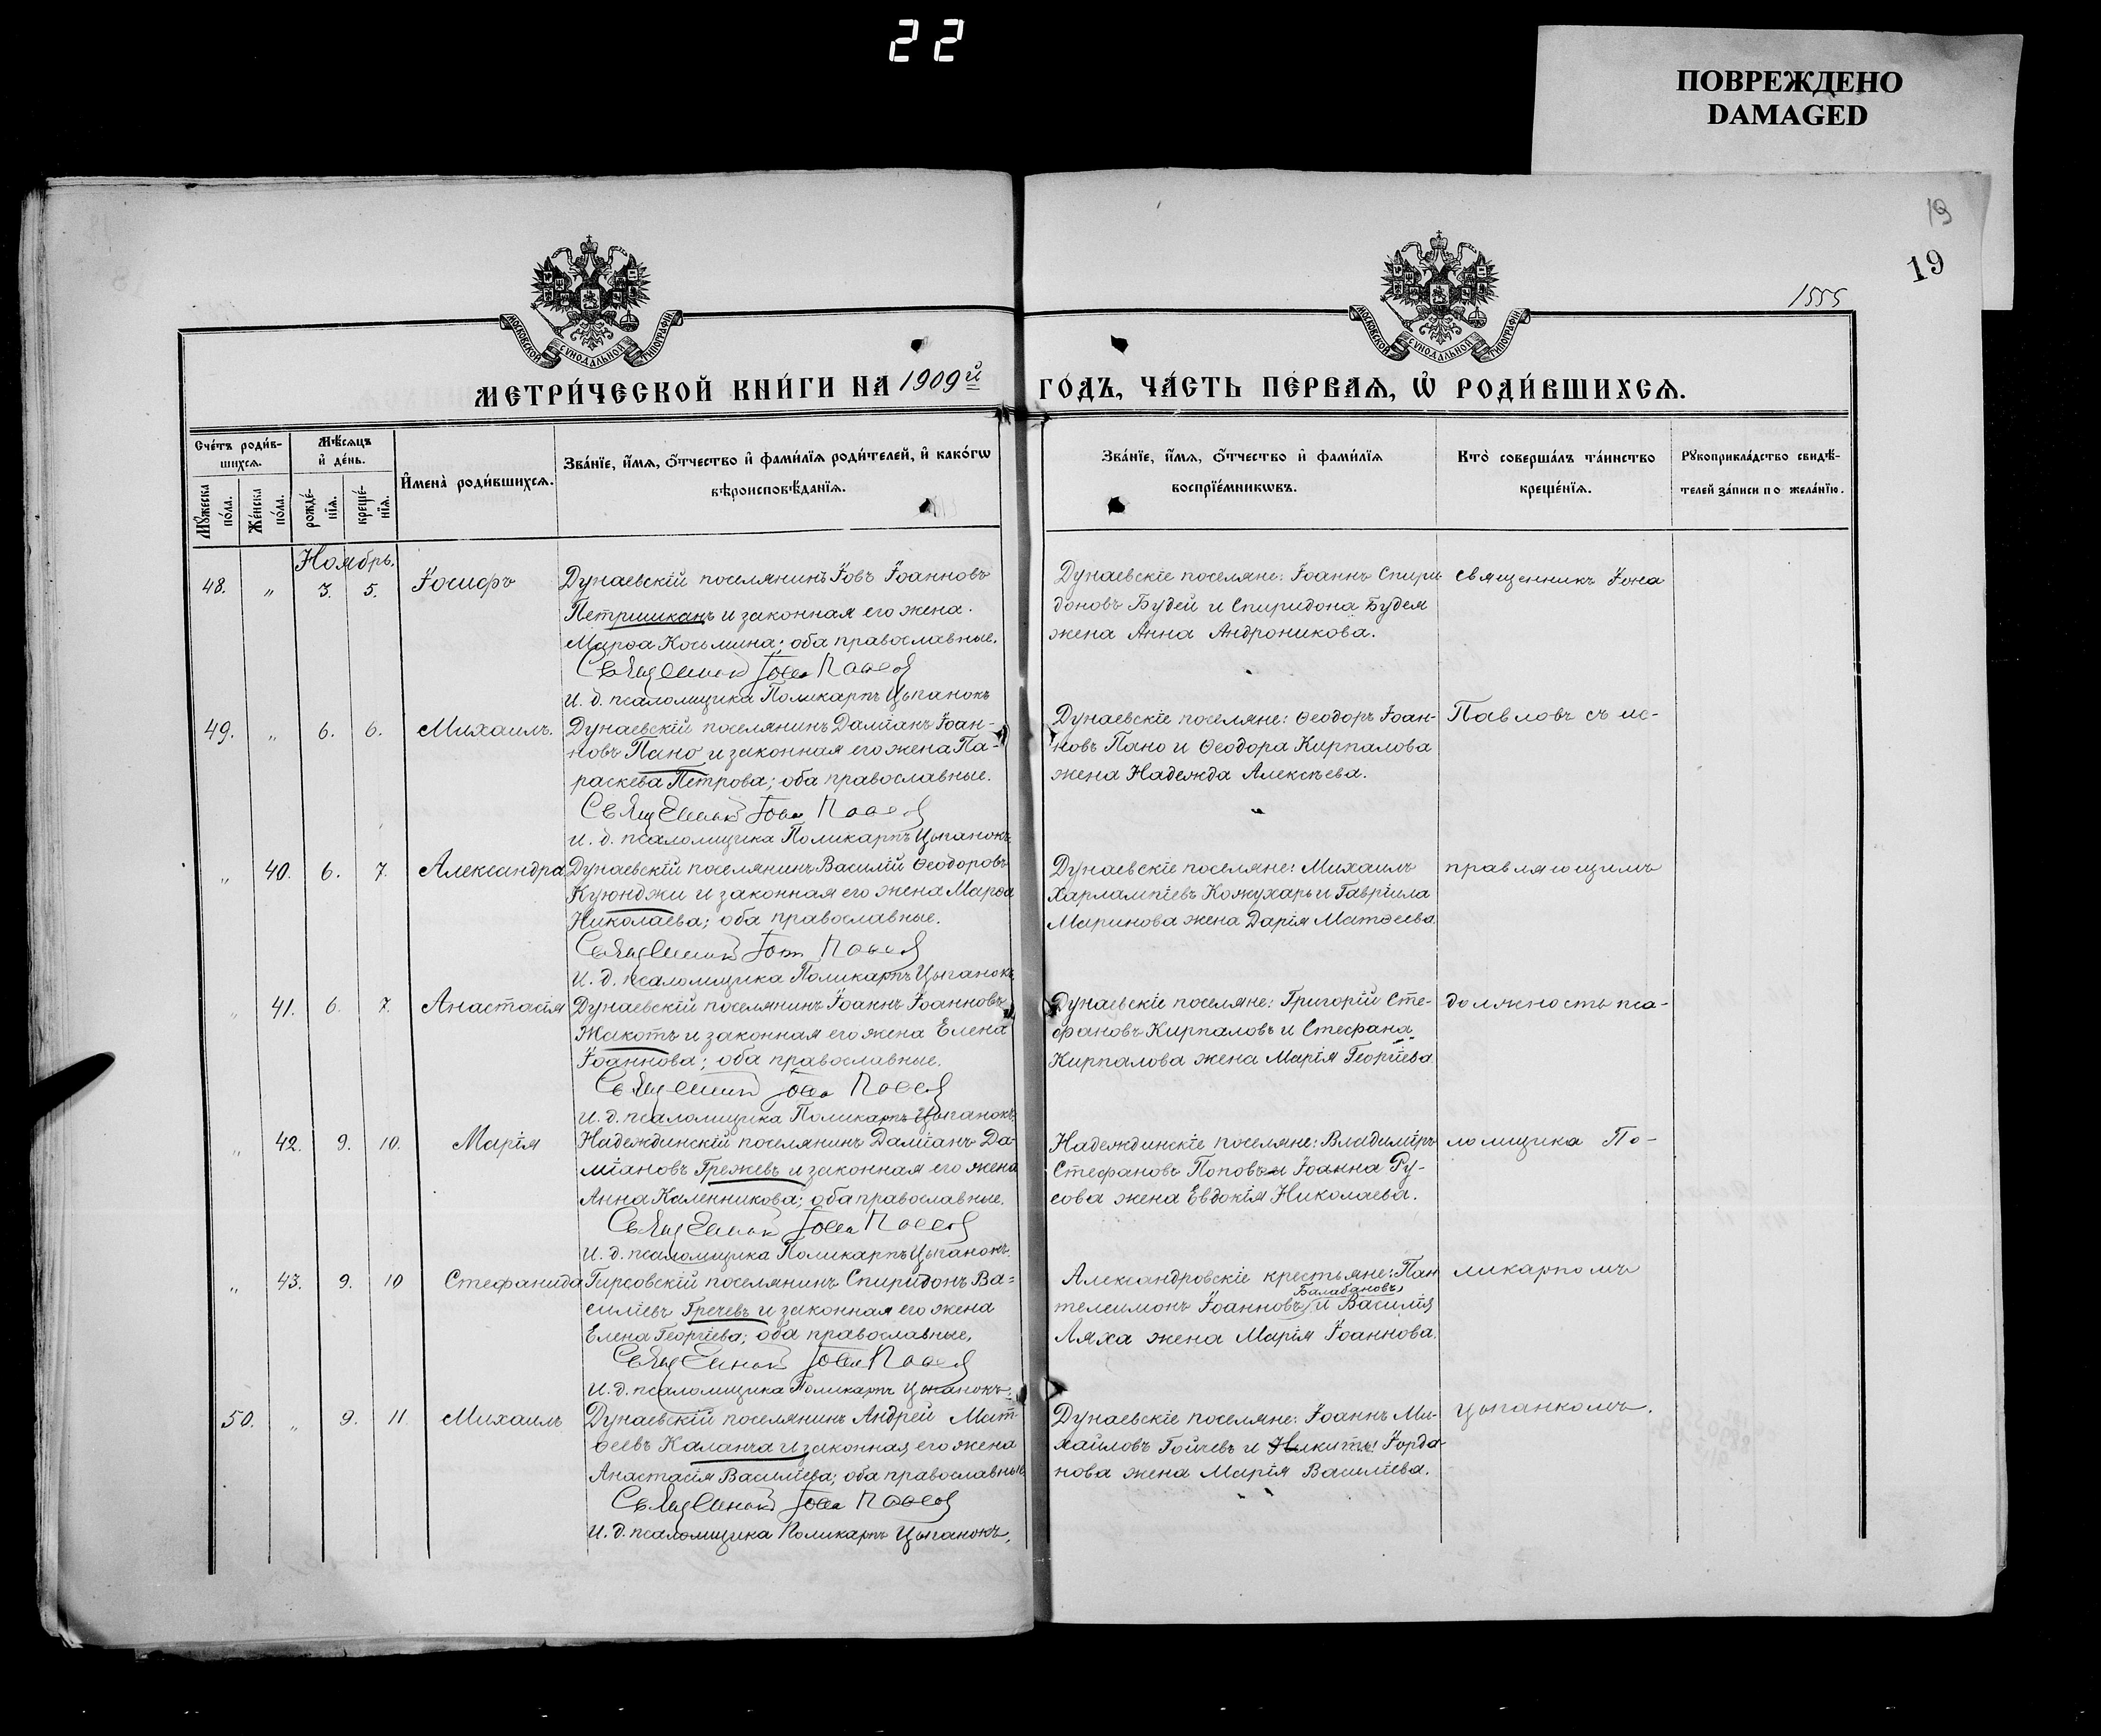 22
ПОВРЕЖДЕНО
DAMAGED
19
19
1555
МОСКОВСКОЙ СѴНОДАЛЬНОЙ ТИПОГРАФІИ
МОСКОВСКОЙ СѴНОДАЛЬНОЙ ТИПОГРАФІИ
МЕТРИ́ЧЕСКОЙ КНИ́ГИ НА 1909й ГО́ДЪ, ЧА́СТЬ ПЕ́РВАѦ, Ѡ҆ РОДИ́ВШИХСѦ.
Сче́тъ роди́в-
шихсѧ.
Мѣ́сѧцъ
и҆ де́нь.
И҆мена̀ роди́вшихсѧ.
Зва́нїе, и҆́мѧ, ѻ҆́тчество и҆ фами́лїѧ роди́телей, и҆ како́гѡ
вѣроисповѣ́данїѧ.
Мꙋ́жеска
по́ла.
Же́нска
по́ла.
рожде́-
нїѧ.
креще́-
нїѧ.
Зва́нїе, и҆́мѧ, ѻ҆́тчество и҆ фами́лїѧ
воспрїе́мникѡвъ.
Кто̀ соверша́лъ та́инство
креще́нїѧ.
Рꙋкоприкла́дство свидѣ́-
телей за́писи по жела́нїю.
Ноябрь.
48. „ 3. 5. Іосифъ
Дунаевскій поселянинъ Іовъ Іоанновъ
Петришканъ и законная его жена
Марѳа Косьмина; оба православные.
Священникъ Іона Павлов
И. д. псаломщика Поликарпъ Цыганокъ
Дунаевскіе поселяне: Іоаннъ Спири-
доновъ Будей и Спиридона Будея
жена Анна Андроникова.
Священникъ Іона
49. „ 6. 6. Михаилъ.
Дунаевскій поселянинъ Даміанъ Іоан-
новъ Пано и законная его жена Па-
раскева Петрова; оба православные.
Священникъ Іона Павлов
И. д. псаломщика Поликарпъ Цыганокъ
Дунаевскіе поселяне: Ѳеодоръ Іоан-
новъ Пано и Ѳеодора Кирпалова
жена Надежда Алексѣева.
Павловъ съ ис-
„ 40. 6. 7. Александра
Дунаевскій поселянинъ Василій Ѳеодоровъ
Куюнджи и законная его жена Марѳа
Николаева; оба православные.
Священникъ Іона Павлов
И. д. псаломщика Поликарпъ Цыганокъ
Дунаевскіе поселяне: Михаилъ
Харлампіевъ Кожухарь и Гавріила
Маринова жена Дарія Матѳеева.
правляющимъ
„ 41. 6. 7. Анастасія
Дунаевскій поселянинъ Іоаннъ Іоанновъ
Жакотъ и законная его жена Елена
Іоаннова; оба православные.
Священникъ Іона Павлов
И. д. псаломщика Поликарпъ Цыганокъ
Дунаевскіе поселяне: Григорій Сте-
фановъ Кирпаловъ и Стефана
Кирпалова жена Марія Георгіева
должность пса-
„ 42. 9. 10. Марія
Надеждинскій поселянинъ Даміанъ Да-
міановъ Грежевъ и законная его жена
Анна Каленникова; оба православные.
Священникъ Іона Павлов
И. д. псаломщика Поликарпъ Цыганокъ.
Надеждинскіе поселяне: Владиміръ
Стефановъ Поповъ и Іоанна Ру-
сова жена Евдокія Николаева.
ломщика По-
„ 43. 9. 10 Стефанида
Гирсовскій поселянинъ Спиридонъ Ва-
силіевъ Гречевъ и законная его жена
Елена Георгіева; оба православные,
Священникъ Іона Павлов
И. д. псаломщика Поликарпъ Цыганокъ.
Александровскіе крестьяне: Пан
телеимонъ Іоанновъ Балабановъ и Василія
Ляха жена Марія Іоаннова.
ликарпомъ
50. „ 9. 11. Михаилъ
Дунаевскій поселянинъ Андрей Мат-
ѳеевъ Каланча и законная его жена
Анастасія Василіева; оба православные
Священникъ Іона Павлов
И. д. псаломщика Поликарпъ Цыганокъ.
Дунаевскіе поселяне: Іоаннъ Ми-
хаиловъ Гойчевъ и Никиты Іорда-
нова жена Марія Василіева.
Цыганкомъ.